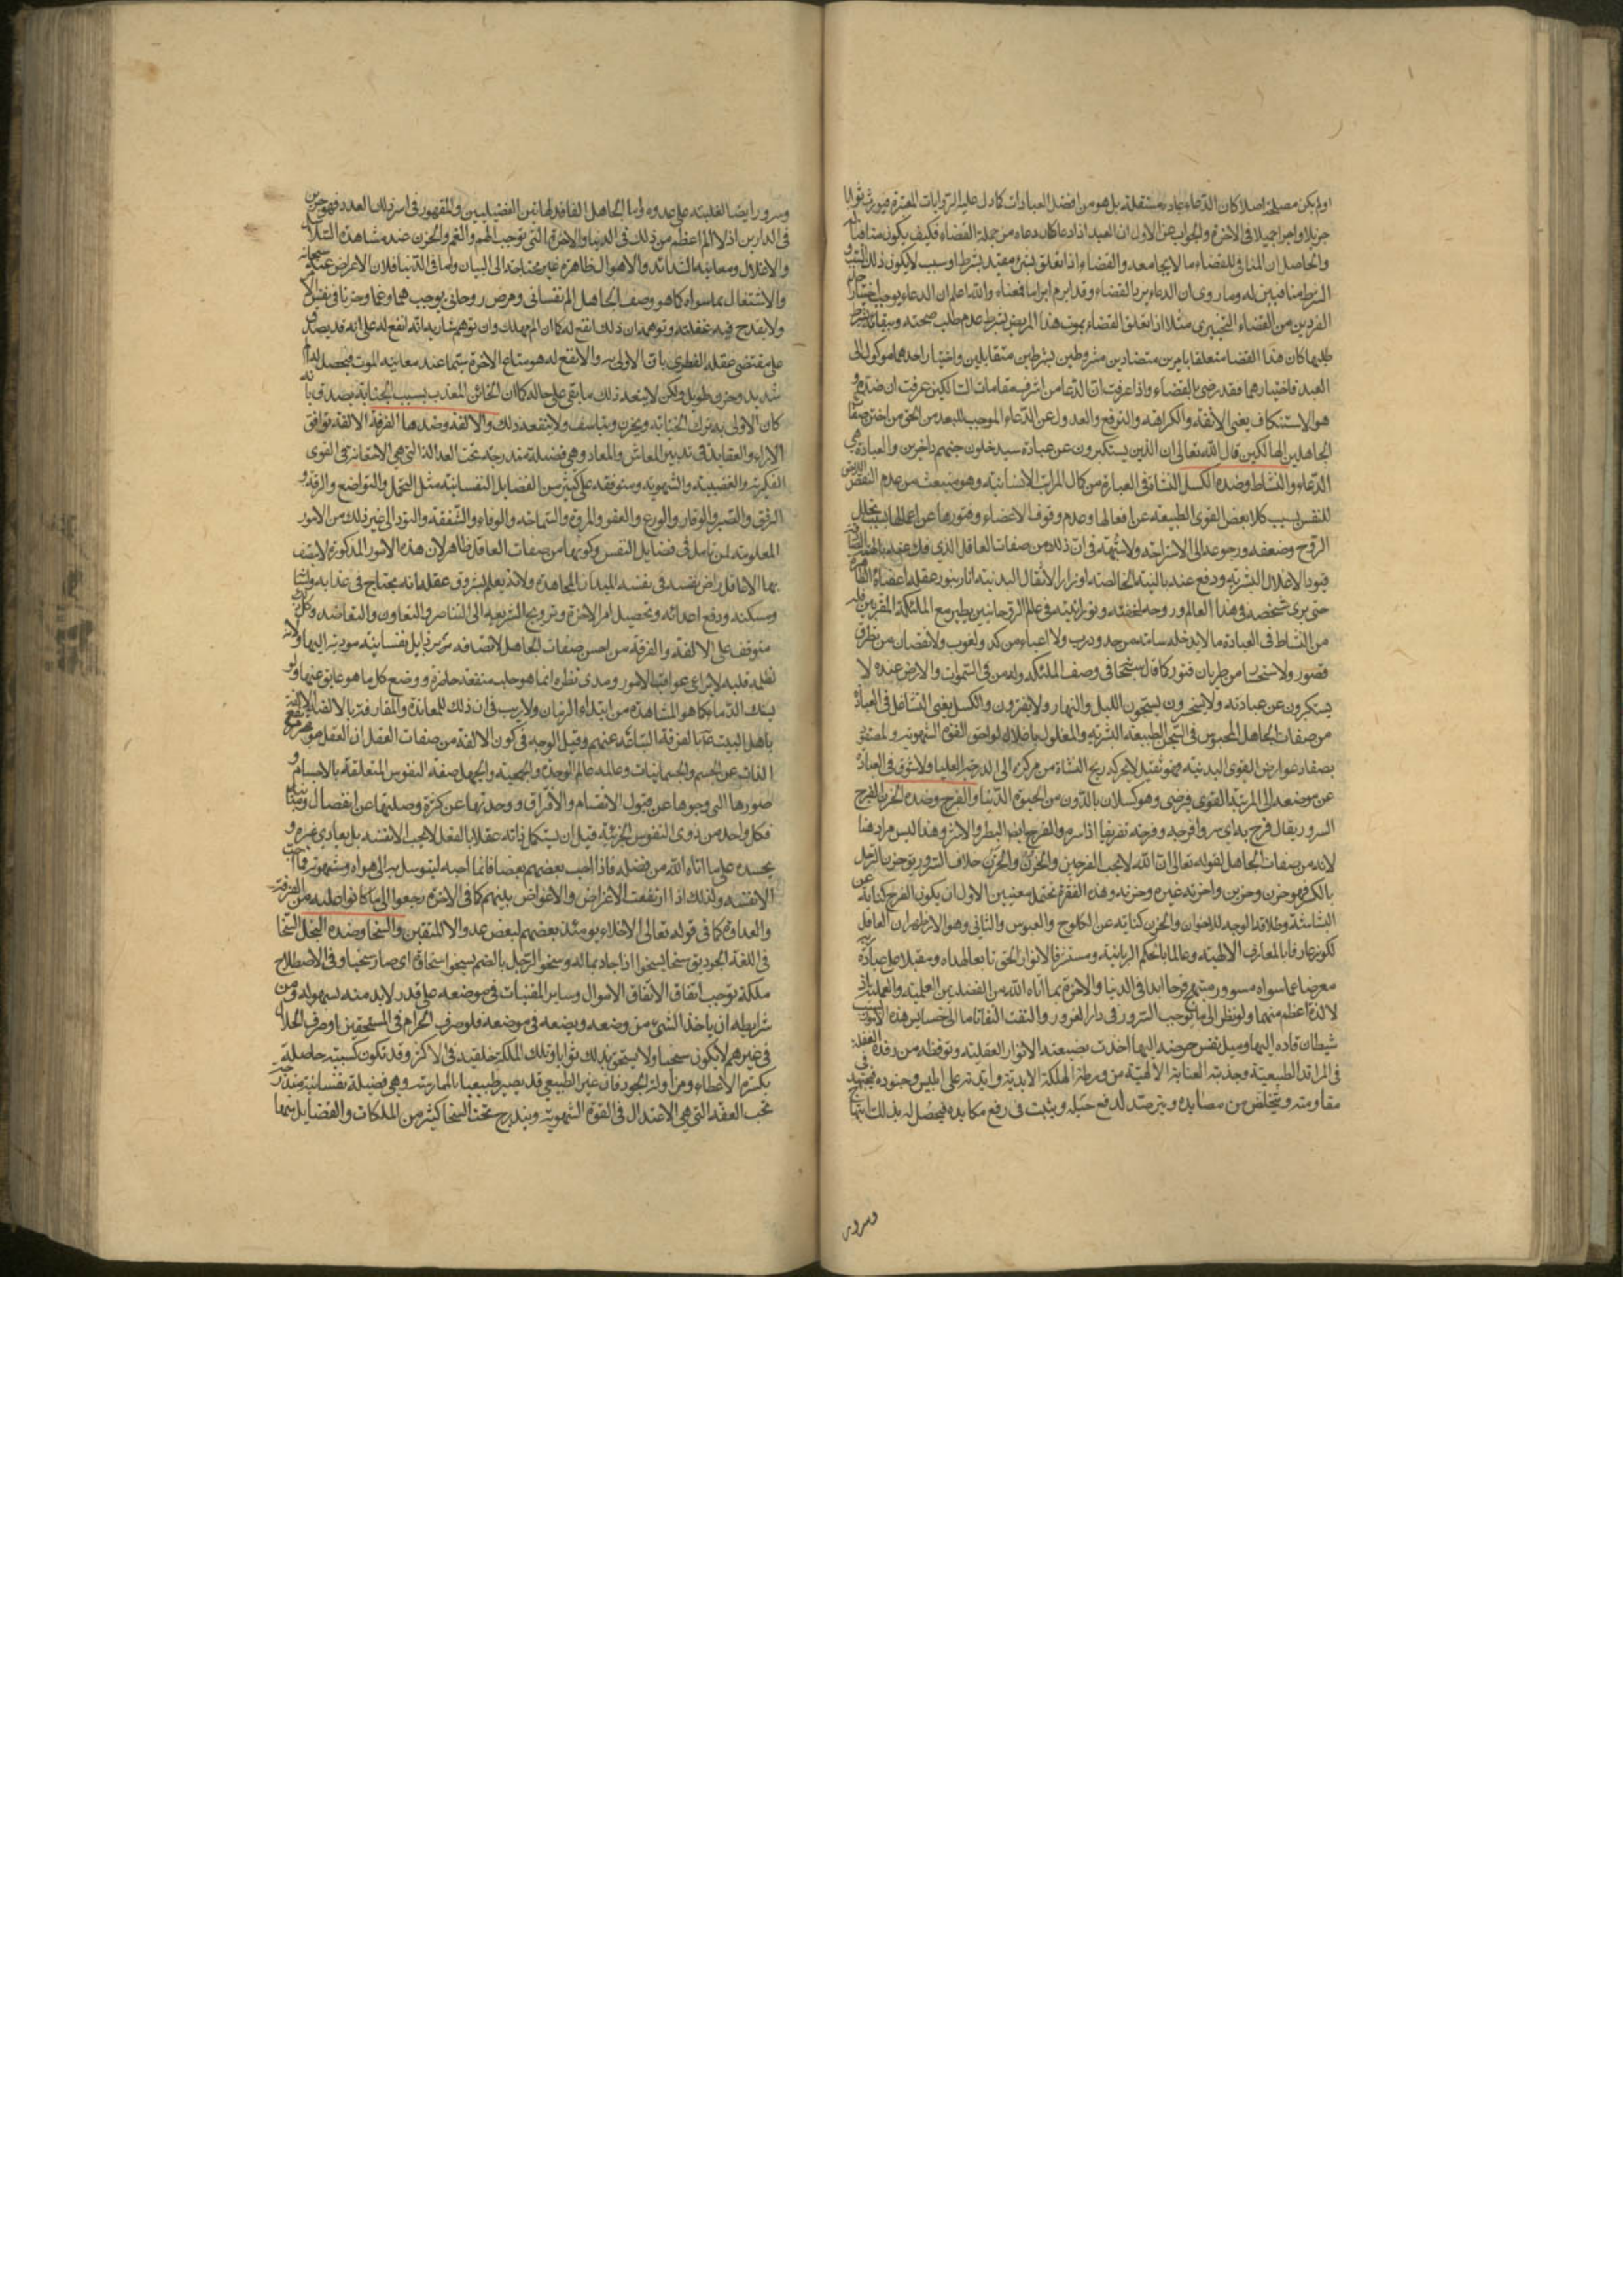 اولم يكن مصلحة اصلا كان الدعاء عبادة مستقلة بل هو من افضل العبادات كما دل عليه الروايات المعتبرة فيورث ثوابا
جزيلا واجرا جميلا فى الاخرة والجواب عن الاول ان العبد اذا دعا كان دعاه من جملة القضاء فكيف يكون منافيا له
والحاصل ان المنافى للقضاء ما لا يجامعه والقضاء اذا تعلق بشئ مقيد بشرط او سبب لا يكون ذلك السبب و
الشرط منافيين له وما روى ان الدعاء يرد القضاء وقد ابرم ابراما فمعناه والله اعلم ان الدعاء يوجب اختيار احد
الفردين من القضاء التخييرى مثلا اذا تعلق القضاء بموت هذا المريض بشرط عدم طلب صحته وببقائه بشرط
طلبها كان هذا القضا متعلقا بامرين متضادين مشروطين بشرطين متقابلين واختيار احدهما موكول الى
العبد فاختيارهما فقد رضى بالقضاء واذا عرفت ان الدعا من اشرف مقامات السالكين عرفت ان ضده و
هو الاستنكاف يعنى الانفة والكراهة والترفع والعدول عن الدعاء الموجب للبعد من الحق من اخس صفات
الجاهلين الهالكين قال الله تعالى ان الذين يستكبرون عن عبادة سيدخلون جهنم داخرين والعبادة هى
الدعاء والنشاط وضده الكسل النشاط فى العبارة من كمال المراتب الانسانية وهو منبعث من عدم النقص
للنفس بسبب كلا بعض القوى الطبيعة عن افعالها وعدم وقوف الاعضاء وفتورها عن اعمالها بسبب تحلل
الروح وضعفه ورجوعه الى الاستراحة ولا شبهة فى ان ذلك من صفات العاقل الذى فك عنه
قيود الاغلال البشرية ودفع عنه بالنية الخالصة اوزار الاثقال البدنية انار بنور عقله اعضاؤه
حتى يرى شخصه فى هذا العالم وروحه لخفته ونورانيته فى عالم الروحانيين يطير مع الملئكة المقربين فله
من النشاط فى العبادة ما لا يدخله سامة من جد ودرب ولا اعياء من كد ولغوب ولا نقصان من تطرق
قصور ولا استحسار من طريان فتور كما قال سبحانه فى وصف الملئكة وله من فى السموات والارض عنده لا
يستكبرون عن عبادته ولا يستحسرون يسبحون الليل والنهار ولا يفترون والكسل يعنى التثاقل فى العبادة
من صفات الجاهل المحبوس فى سجن الطبيعة البشرية والمغلول باغلال لواحق القوة الشهوية والمصفد
بصفاد عوارض القوى البدنية فهو ثقيل لا يحركه ريح النشاط من مركزه الى الدرجة العليا ولا شوق فى العبادة
عن موضعه الى المرتبة القوى فيرضى وهو كسلان بالدون من الحيوة الدنيا والفرح وضده الحزن الفرح
السرور يقال فرح به اى سر وافرحه وفرحه تفريحا اذا سره والفرح ايضا البطر والاشر وهذا ليس مراد هنا
لانه من صفات الجاهل لقوله تعالى ان الله لا يحب الفرحين والحزن والحزن خلاف السرور يق حزن الرجل
بالكسر فهو حزن وحزين واحزنه غيره وحزنه وهذه الفقرة تحتمل معنيين الاول ان يكون الفرح كناية عن
البشاشة وطلاقة الوجه للاخوان والحزن كناية عن الكلوح والعبوس والثانى وهو الاظهر ان العاقل
لكونه عارفا بالمعارف الالهية وعالما بالحكم الربانية ومستغرقا لانوار الحق تابعا لهداه ومقبلا على عبادة ربه
معرضا عما سواه مسرور مبتهج فرحا ابدا فى الدنيا والاخرة بما اتاه الله من الفضيلتين العلمية والعملية اذ
لا لذة اعظم منهما ولو نظر الى ما يوجب السرور فى دار الغرور والتفت التفاتا ما الى خسايس هذه الامور بسبب
شيطان قاده اليها وميل نفس حرضه اليها اخذت بضبعه الانوار العقلية وتوقظه من رقدة الغفلة
فى المراقد الطبيعية وجذبته العناية الالهية من ورطة الهلكة الابدية وايدته على ابليس وجنوده فيجتهد فى
مقاومته ويتخلص من مصايده ويترصد لدفع حيله ويثبت فى رفع مكايده فيحصل له بذلك ابتهاج
وسرور
وسرور ايضا لغلبته على عدوه واما الجاهل الفاقد لهاتين الفضيلتين والمقهور فى اسر ذلك العدو فهو حزين
فى الدارين اذ لا الم اعظم من ذلك فى الدنيا والاخرة التى توجب الهم والغم والحزن ضد مشاهدة السلاسل
والاغلال ومعاينة الشدائد والاهوال ظاهرة غير محتاجة الى البيان واما فى الدنيا فلان الاعراض عنه سبحانه
والاشتغال بما سواه كما هو وصف الجاهل الم نفسانى ومرض روحانى يوجب هما وغما وحزنا فى نفس الامر
ولا يقدح فيه غفلته وتوهمه ان ذلك انفع له كما ان الم مهلك وان توهم شاربه انه انفع له على انه قد يصدق
على مقتضى عقله الفطرى بان الاولى به والانفع له هو متاع الاخرة سيما عند معاينة الموت فيحصل له الم
شديد وحزن طويل ولكن لا ينفعه ذلك ما بقى على حاله كما ان الخائن المعذب بسبب الجناية يصدق بانه
كان الاولى به ترك الخيانة ويحزن ويتاسف ولا ينفعه ذلك والالفة وضدها الفرقة الالفة توافق
الاراء والعقايد فى تدبير المعاش والمعاد وهى فضيلة مندرجة تحت العدالة التى هى الاستقامة فى القوى
الفكرية والغضبية والشهوية ومتوقفة على كثير من الفضايل النفسانية مثل التحمل والتواضع والرقة و
الرفق والصبر والوقار والورع والعفو والمروة والسماحة والوفاء والشفقة والتودد الى غير ذلك من الامور
المعلومة لمن تامل فى فضايل النفس وكونها من صفات العاقل ظاهر لان هذه الامور المذكورة لا يتصف
بها الا عاقل راض نفسه فى ميدان المجاهدة ولانه يعلم بشروق عقله انه يحتاج فى غذائه ولباسه
ومسكنه ودفع اعدائه وتحصيل امر الاخرة وترويج الشريعة الى التناصر والتعاون والتعاضد وكل ذلك
متوقف على الالفة والفرقة من اخس صفات الجاهل لاتصافه برذايل نفسانية مودية اليها ولان
لظلمة قلبه لا يراعى عواقب الامور ومدى نظره انما هو جلب منفعة حاضرة ووضع كل ما هو عايق عنها ولو
بسفك الدماء كما هو المشاهد من ابتداء الزمان ولا ريب فى ان ذلك للمعاندة والمفارقة
باهل البيت ع بالفرقة السائدة عنهم وقيل الوجه فى كون الالفة من صفات العقل ان العقل
الذات عن الجسم والجسمانيات وعالمه عالم الوحدة والجمعية والجهل صفة النفوس المتعلقة بالاجسام و
صورها التى وجوها عن قبول الانقسام والافتراق ووحدتها عن كثرة وصلتها عن انفصال
فكل واحد من ذوى النفوس الجزئية قبل ان يستكمل ذاته عقلا بالفعل لا يحب الا نفسه بل يعادى غيره و
يحسده على ما اتاه الله من فضله فاذا احب بعضهم بعضا فانما احبه ليتوسل به الى هواه وشهوته فما احب
الا نفسه ولذلك اذا ارتفعت الاغراض والاعواض بينهم كما فى الاخرة رجعوا الى ما كانوا عليه من الفرقة
والعداوة كما فى قوله تعالى الاخلاء يومئذ بعضهم لبعض عدو الا المتقين والسخا وضده البخل السخا
فى اللغة الجود يق سخا يسخوا اذا جاد بماله وسخو الرجل بالضم يسخوا سخاوة اى صار سخيا وفى الاصطلاح
ملكة توجب انفاق الاموال وساير المقتنيات فى موضعه على قدر لابد منه بسهولة ومن
شرايطه ان ياخذ الشئ من وضعه ويضعه فى موضعه فلو صرف الحرام فى المستحقين او صرف الحلال
فى غيرهم لا يكون سخيا ولا يستحق بذلك ثوابا وتلك الملكة خلقية فى الاكثر وقد تكون كسبية حاصلة
بكثرة الاعطاء ومزاولة الجود فان غير الطبيعى قد يصير طبيعيا بالممارسة وهى فضيلة نفسانية مندرجة
تحت العفة التى هى الاعتدال فى القوة الشهوية ويندرج تحت السخا كثير من الملكات والفضايل منها